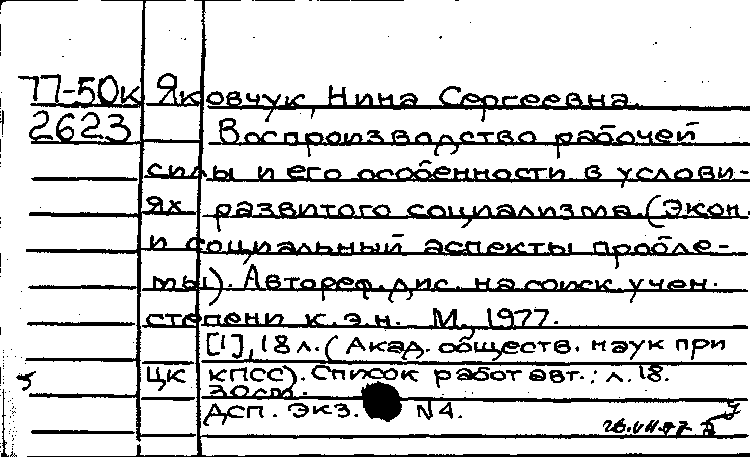 77-50к Яковчук, Нина Сергеевна.
2623 Воспроизводство рабочей
силы и его особенности в услови-
ях развитого социализма. (Экон.
и социальный аспекты пробле-
мы). Автореф. дис. на соиск. учен.
степени к.э.н. М., 1977.
[1], 18 л. (Акад. обществ. наук при
ЦК КПСС). Список работ авт.: л. 18.
30 см.
ДСП. Экз. N4.